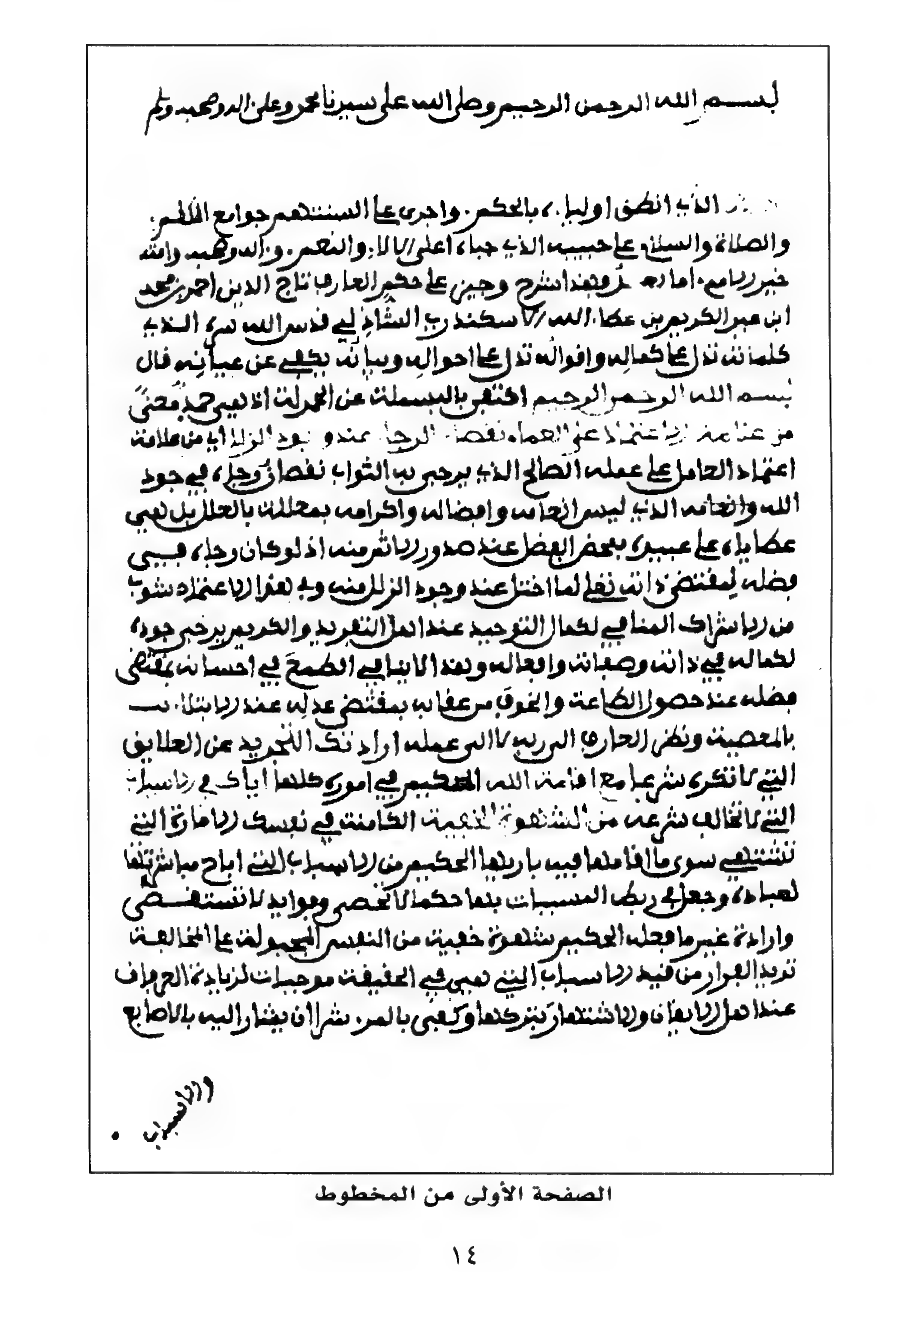 بسم الله الرحمن الرحيم وصلى الله على سيدنا محمد وعلى اله وصحبه وسلم
الذي انطق اولياءه بالحكم. واجرى على السنتهم جوامع الكلم.
والصلاة والسلام على حبيبه الذي حباه اعلى الالاء والنعم. واله وصحبه
اما بعد فهذا شرح وجيز على حكم العارف تاج الدين احمد بن محمد
ابن عبد الكريم بن عطاء الله الاسكندري الشاذلي قدس الله سره الذي
كلماته تدل على كماله واقواله تدل على احواله وبيانه يكفي عن عيانه قال
بسم الله الرحمن الرحيم اكتفى بالبسملة عن الحمدلة اذ هي حمد معنى
من علامة الاعتماد على العمل نقصان الرجاء عند وجود الزلل اي من علامة
اعتماد العامل على عمله الصالح الذي يرجى به الثواب نقصان رجاءه في جود
الله وانعامه الذي ليس انعامه وافضاله واكرامه بمعللة بالعلل بل هي
عطاياه على عبيده بمحض الفضل عند صدور الاثر منه اذ لو كان رجاءه في
فضله لمقتضى ذاته تعلى لما اختل عند وجود الزلل منه وفي هذا الاعتماد شوب
من الاشراك المنافي لكمال التوحيد عند اهل التفريد والكريم يرجى جوده
لكماله في ذاته وصفاته وافعاله وهذا لا ينافي الطمع في احسانه بمقتضى
فضله عند حصول الطاعة والخوف من عقابه بمقتضى عدله عند الابتلاء
بالمعصية ونظر العارف الى ربه لا الى عمله ارادتك التجريد عن العلايق
التي لا تنكره شرعا مع اقامة الله الحكيم في اموره كلها اياك في الاسباب
التي لا تخالف شرعه من الشهوة الخفية الكامنة في نفسك الامارة التي
تشتهي سوى ما اقامها فيه باريها الحكيم من الاسباب التي اباح مباشرتها
لعباده وجعل في ربط المسببات بها حكما لا تحصى وفوايد لا تستقصى
وارادة غير ما فعله الحكيم شهوة خفية من النفس المجبولة على المخالفة
تريد الفرار من قيد الاسباب التي هي في الحقيقة موجبات لزيادة العرفان
عند اهل الايقان والاشتهار بتركها وكفى بالمرء شرا ان يشار اليه بالاصابع
والاسباب
الصفحة الأولى من المخطوط
١٤